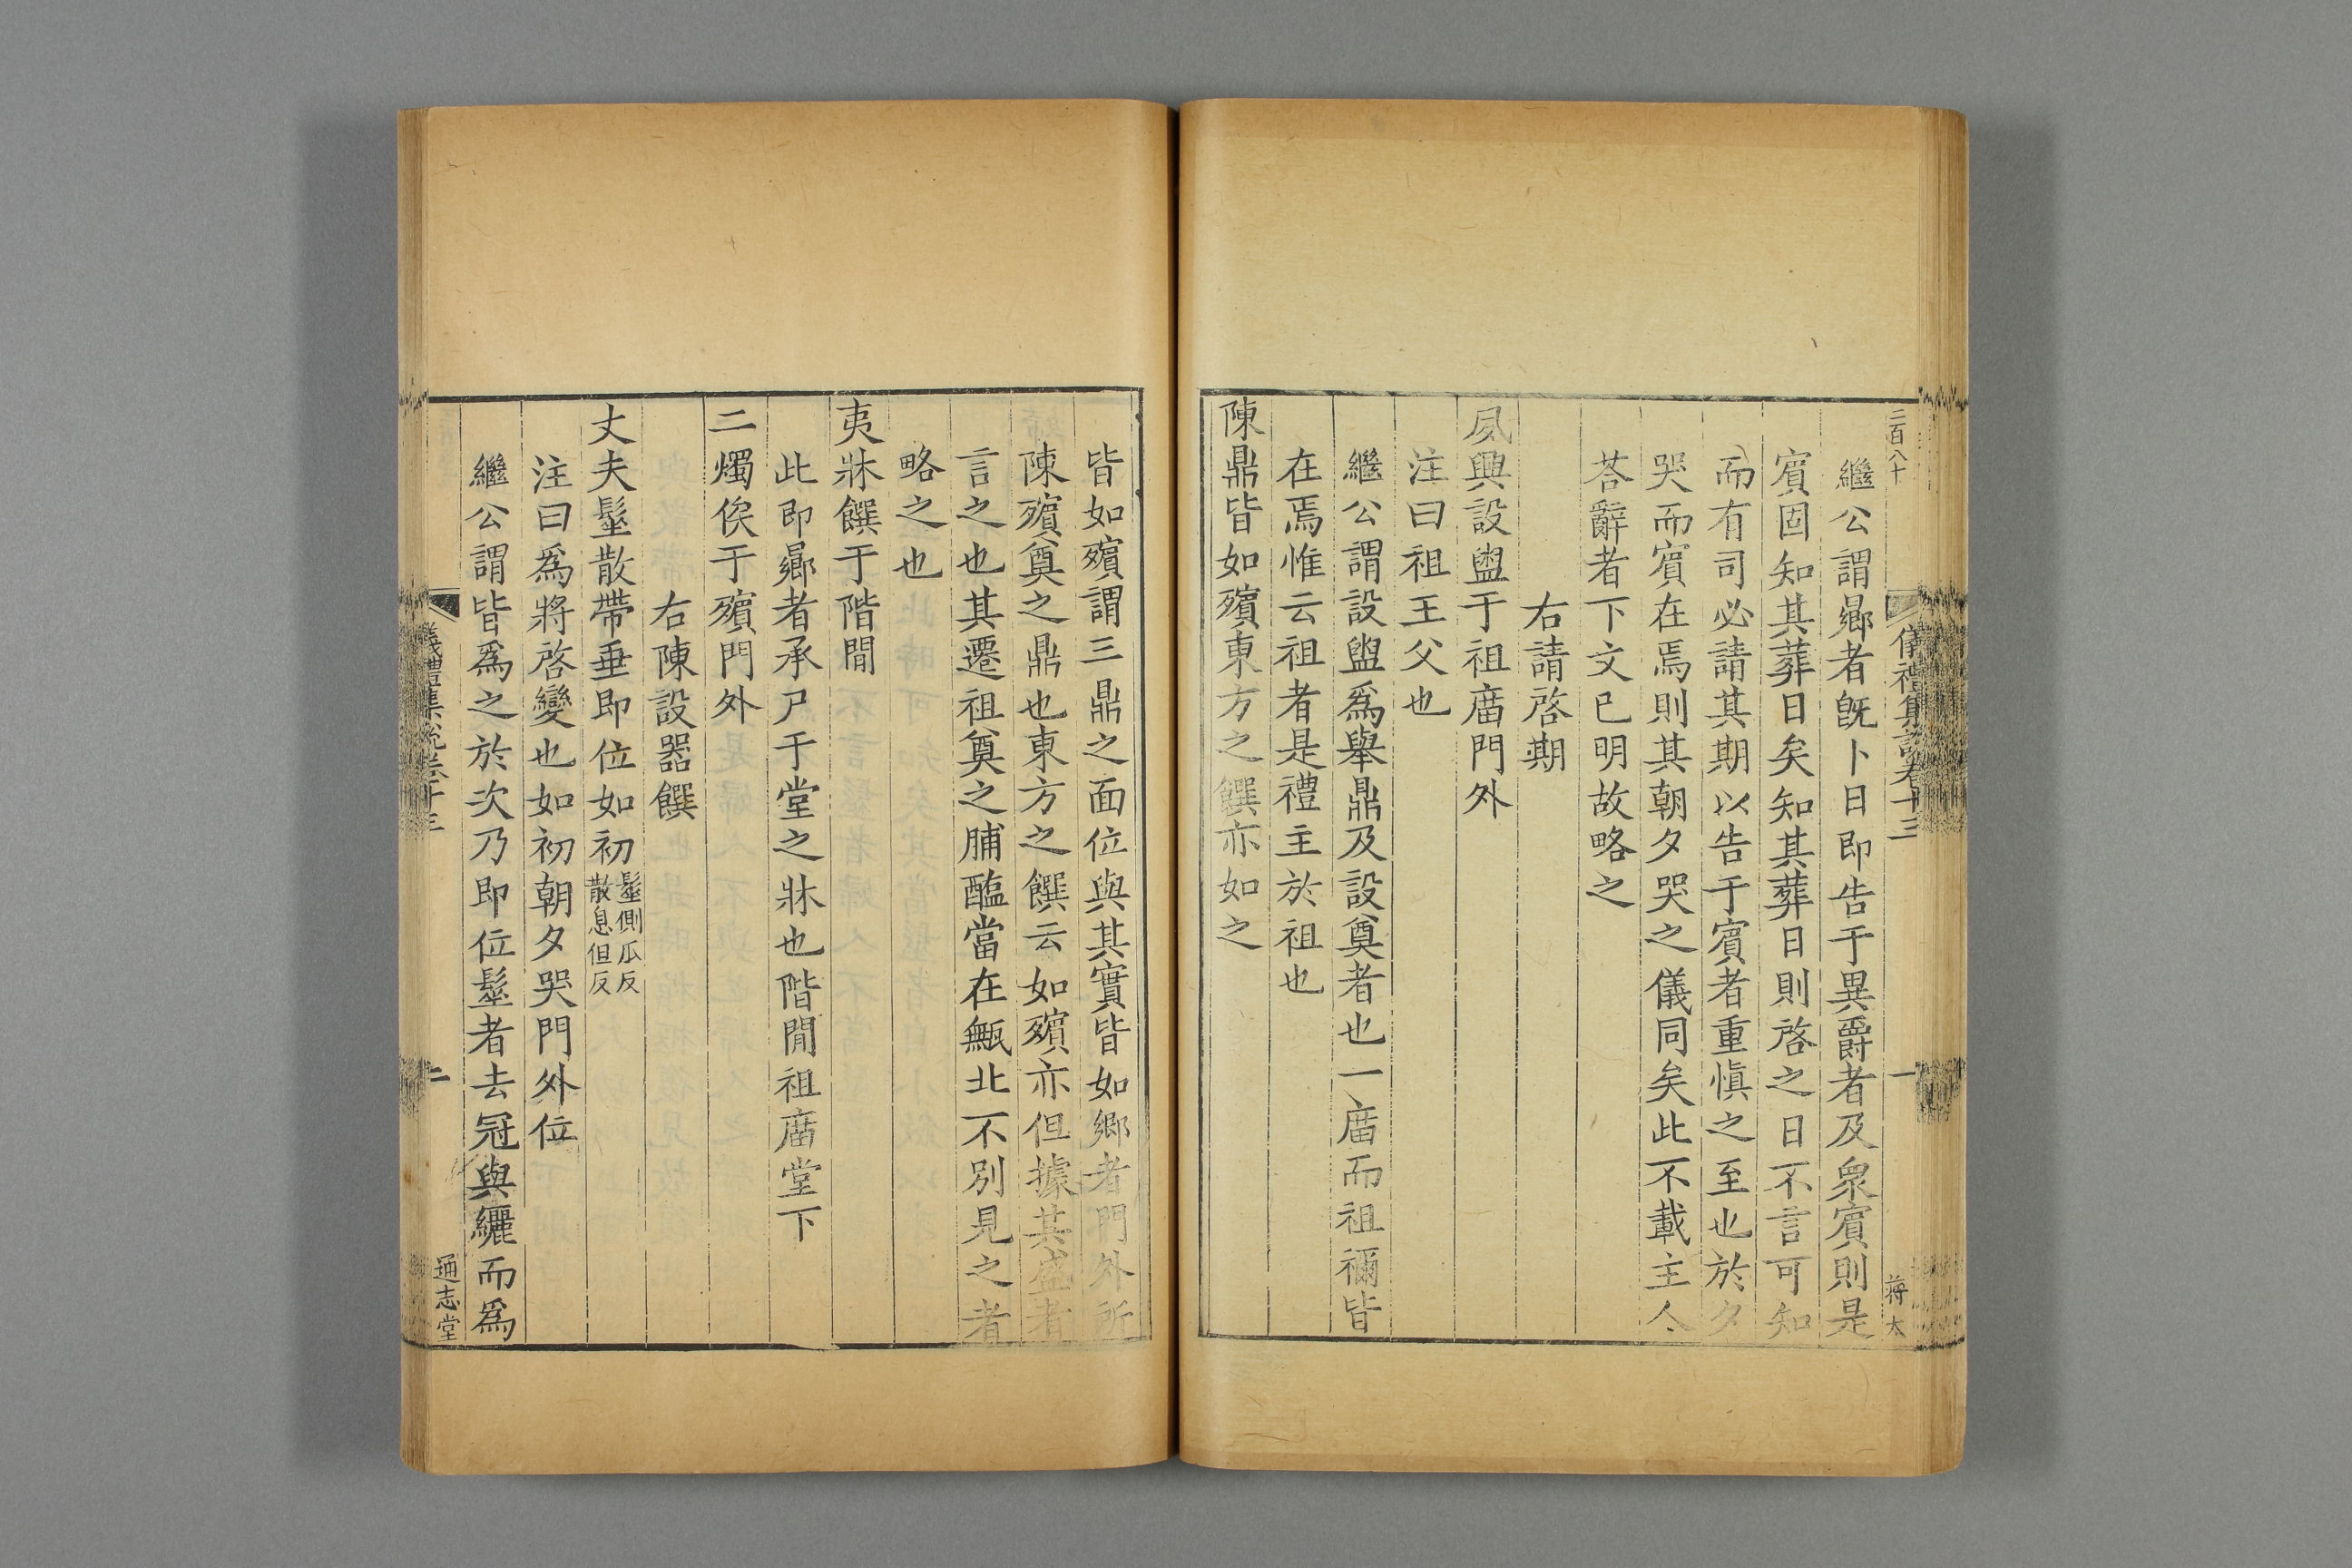 二百八十
儀禮集說卷十三
一
蒋太
繼公謂鄉者旣卜日即告于異爵者及衆賓則是
賓固知其葬日矣知其葬日則啓之日不言可知
而有司必請其期以告于賓者重愼之至也於夕
哭而賓在焉則其朝夕哭之儀同矣此不載主人
荅辭者下文已明故略之
右請啓期
夙興設盥于祖庿門外
注曰祖王父也
繼公謂設盥爲舉鼎及設奠者也一庿而祖禰皆
在焉惟云祖者是禮主於祖也
陳鼎皆如殯東方之饌亦如之
皆如殯謂三鼎之面位與其實皆如鄉者門外所
陳殯奠之鼎也東方之饌云如殯亦但據其盛者
言之也其遷祖奠之脯醢當在甒北不別見之者
略之也
夷牀饌于階閒
此即鄉者承尸于堂之牀也階閒祖庿堂下
二燭俟于殯門外
右陳設器饌
丈夫髽散帶垂即位如初髽側瓜反散息但反
注曰爲將啓變也如初朝夕哭門外位
繼公謂皆爲之於次乃即位髽者去冠與纚而爲
儀禮集說卷十三
二
通志堂